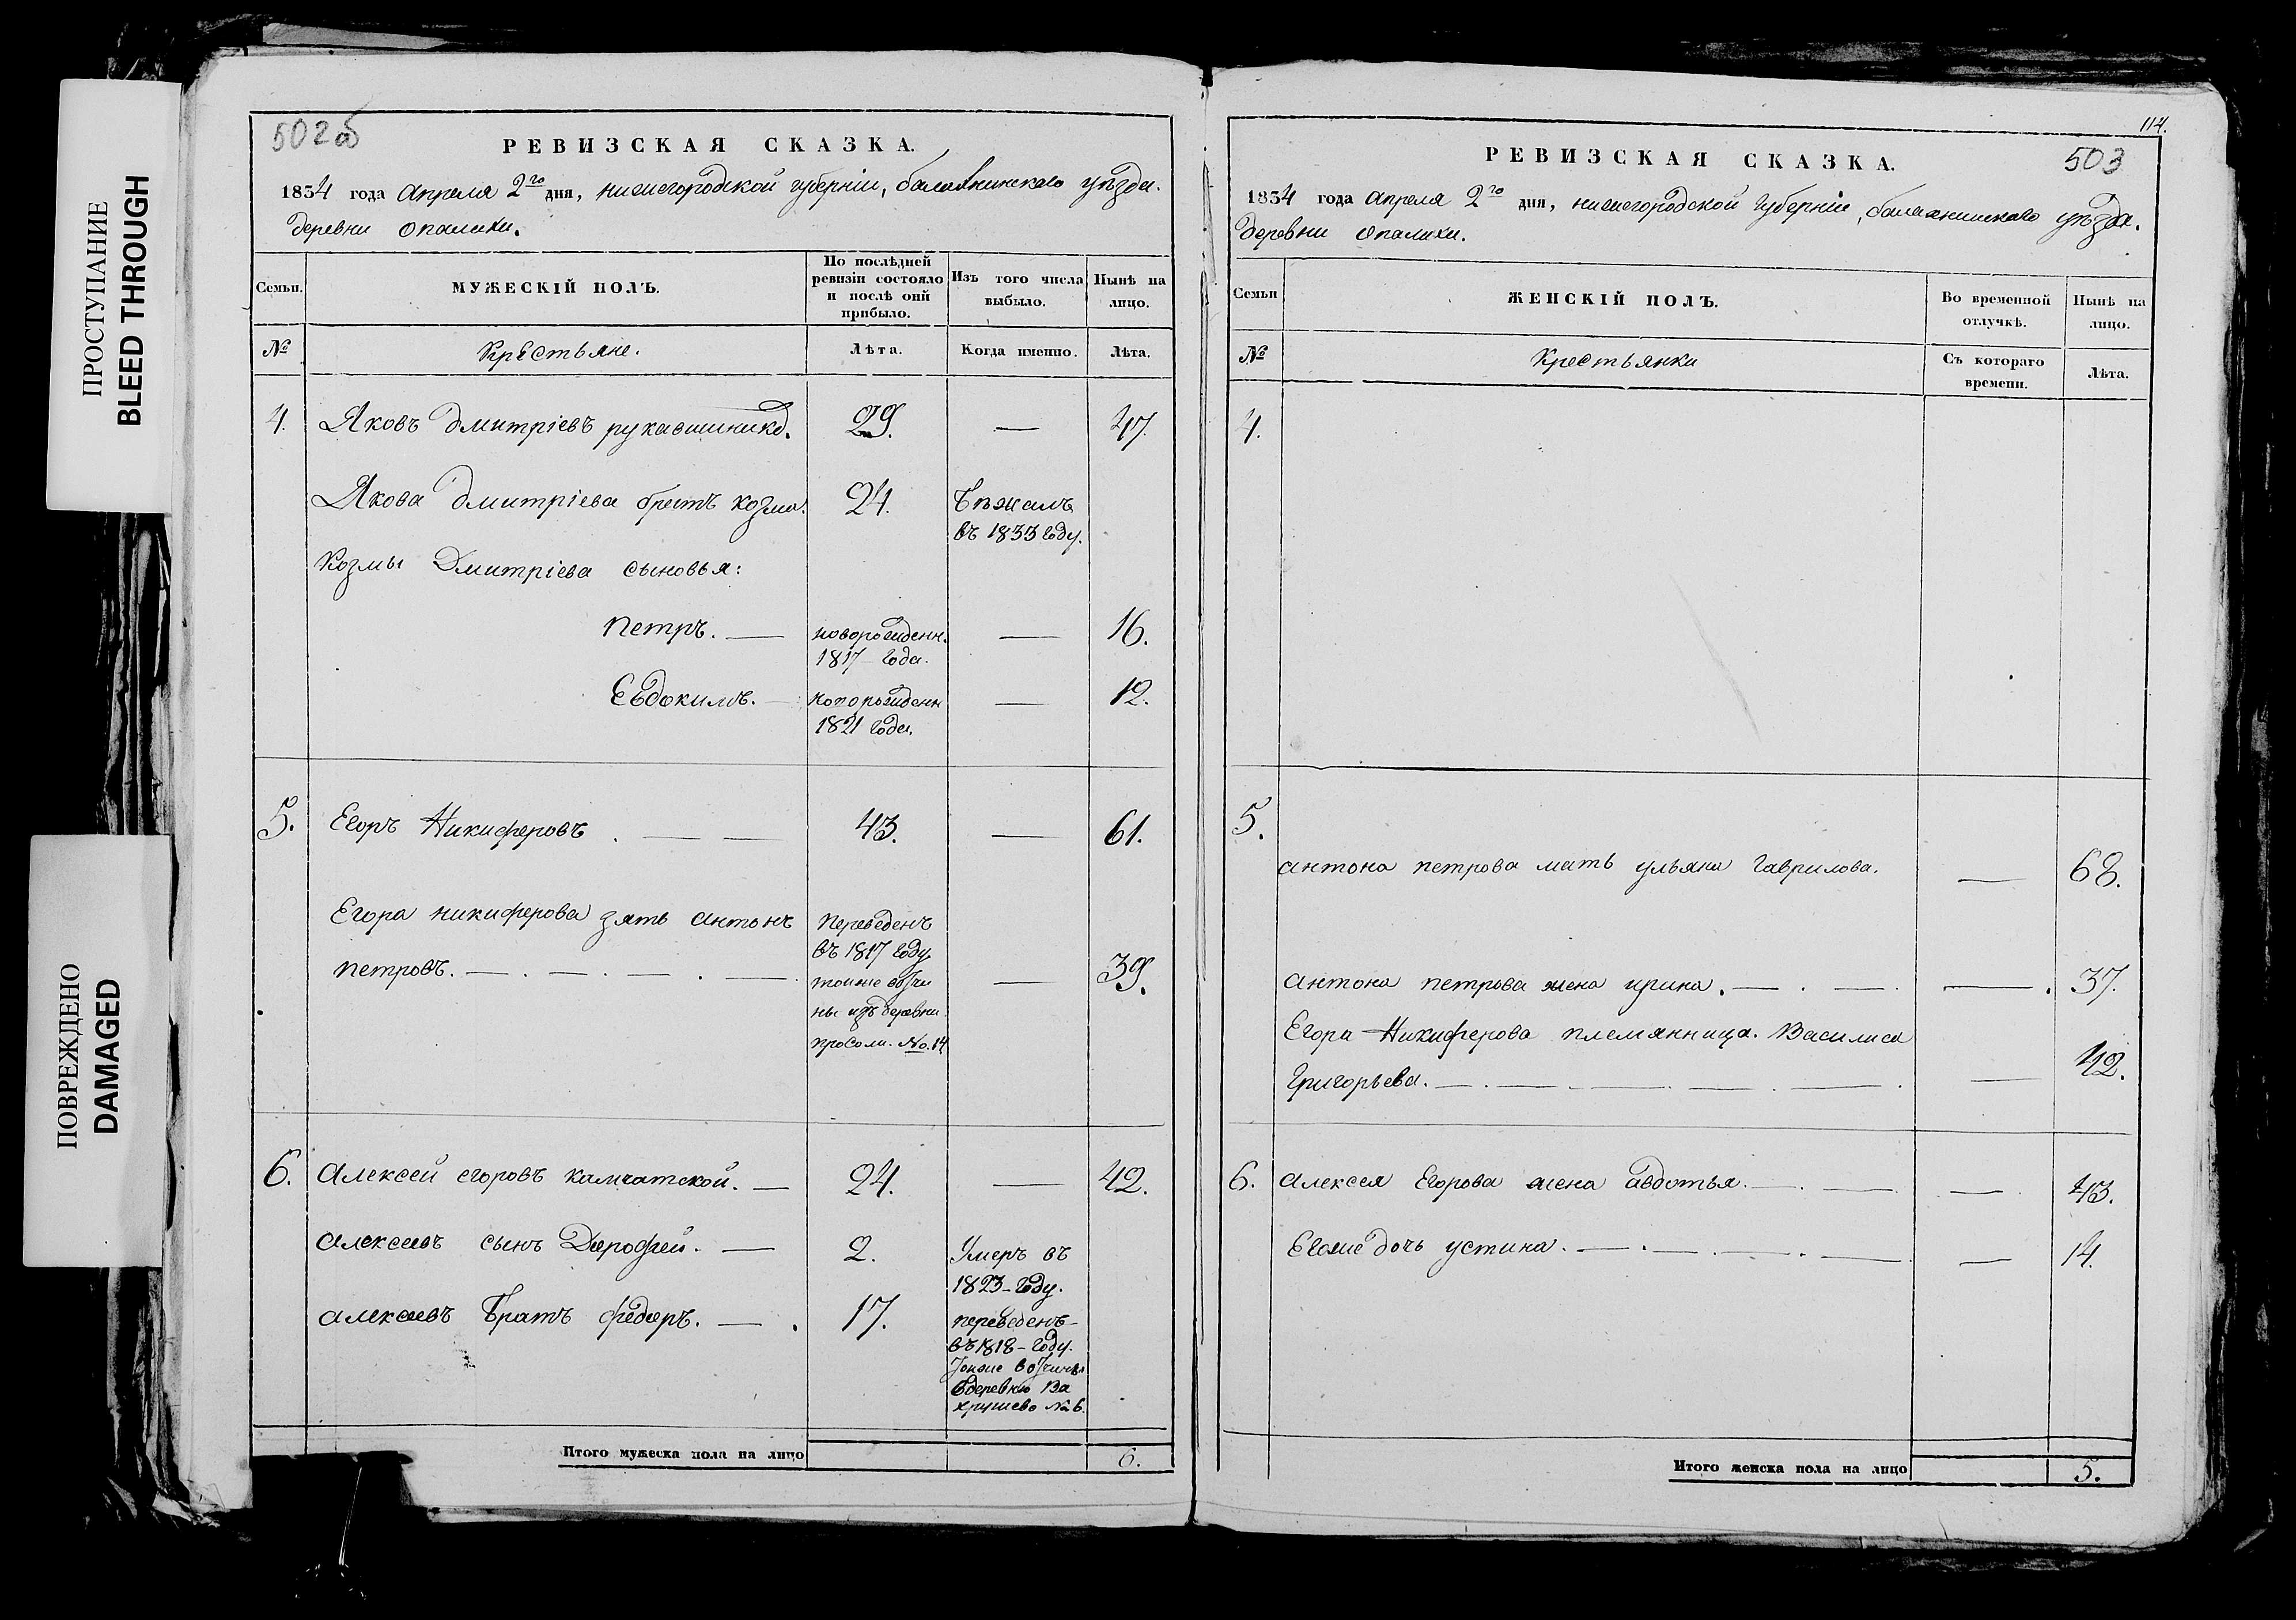 ПРОСТУПАНИЕ
BLEED THROUGH
ПОВРЕЖДЕНО
DAMAGED
502об
РЕВИЗСКАЯ СКАЗКА.
1834 года апреля 2го дня, нижегородской губерніи, балахнинскаго уѣзда.
деревни опалихи.
Семьи.
МУЖЕСКІЙ ПОЛЪ.
По послѣдней ревизіи состояло и послѣ оній прибыло.
Изъ того числа выбыло.
Нынѣ на лицо.
№
Крестьяне.
Лѣта.
Когда именно.
Лѣта.
4. Яковъ дмитріевъ рукавишник. 29. — 47.
Якова дмитріева братъ козма. 24. Бѣжалъ
въ 1833 году.
Козмы Дмитріева сыновья:
Петръ. — новорожденн. — 16.
1817 года.
Евдокимъ. — новорожденн — 12.
1821 года.
5. Егоръ Никиферовъ . — — 43. — 61.
Егора никиферова зять антонъ Переведенъ
въ 1817 году
петровъ. — . — . — . — . тояже вотчи — 39.
ны изъ деревни
No. 14
6. Алексей егоровъ камчатской. — 24. — 42.
алексеевъ сынъ Дорофей. — 2. Умеръ въ
1823 – году.
алексеевъ братъ федоръ. — . 17. переведенъ –
въ 1818 – году.
тояже вотчины
вдеревню Ва
хрушево № 6.
Итого мужеска пола на лицо 6.
114.
503
РЕВИЗСКАЯ СКАЗКА.
1834 года апреля 2го дня, нижегородской губерніи, балахнинскаго уѣзда.
деревни опалихи.
Семьи
ЖЕНСКІЙ ПОЛЪ.
Во временной отлучкѣ.
Нынѣ на лицо.
№
Крестьянки
Съ котораго времени.
Лѣта.
4.
5.
антона петрова мать ульяна гаврилова. — 68.
антона петрова жена ирина. — . — . — . 37.
Егора Никиферова племянница. Василиса
Григорьева. — . — . — . — . — . — 42.
6. алексея Егорова жена авдотья. — . — — . 43.
Егоже дочь устина. — . — . — . — . — 14.
Итого женска пола на лицо 5.